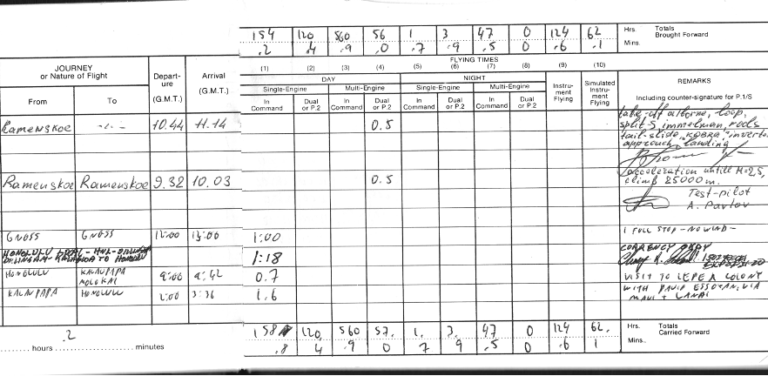 154 120 560 56 1 3 47 0 124 62 Hrs. Totals
.2 .4 .9 .0 .7 .9 .5 0 .6 .1 Mins. Brought Forward
FLYING TIMES
JOURNEY
or Nature of Flight
Depart-
ure
(G.M.T.)
Arrival
(G.M.T.)
(1) (2) (3) (4) (5) (6) (7) (8) (9) (10)
DAY NIGHT
Single-Engine Multi-Engine Single-Engine Multi-Engine
Instru-
ment
Flying
Simulated
Instru-
ment
Flying
REMARKS
Including counter-signature for P.1/S
From To
In
Command
Dual
or P.2
In
Command
Dual
or P.2
In
Command
Dual
or P.2
In
Command
Dual
or P.2
Ramenskoe -"- 10.44 11.14 0.5
loop,
split-S immelman,
tail-slide, "KOBRA"
approach, landing
Ramenskoe Ramenskoe 9.32 10.03 0.5
climb 25000 m.
Test-pilot
A. Pavlov
GNOSS GNOSS 12:00 13:00 1:00
1 FULL STOP - NO WIND -
1:18
HONOLULU KALAUPAPA
MOLOKAI
9:00 9:42 0.7
VISIT TO LEPER COLONY
KALAUPAPA HONOLULU 2:00 3:36 1.6
WITH DAVID
MAUI & LANAI
.2
hours minutes
158 120 560 57 1 3 47 0 124 62 Hrs. Totals
.8 4 .9 0 .7 9 .5 0 .6 1 Mins. Carried Forward